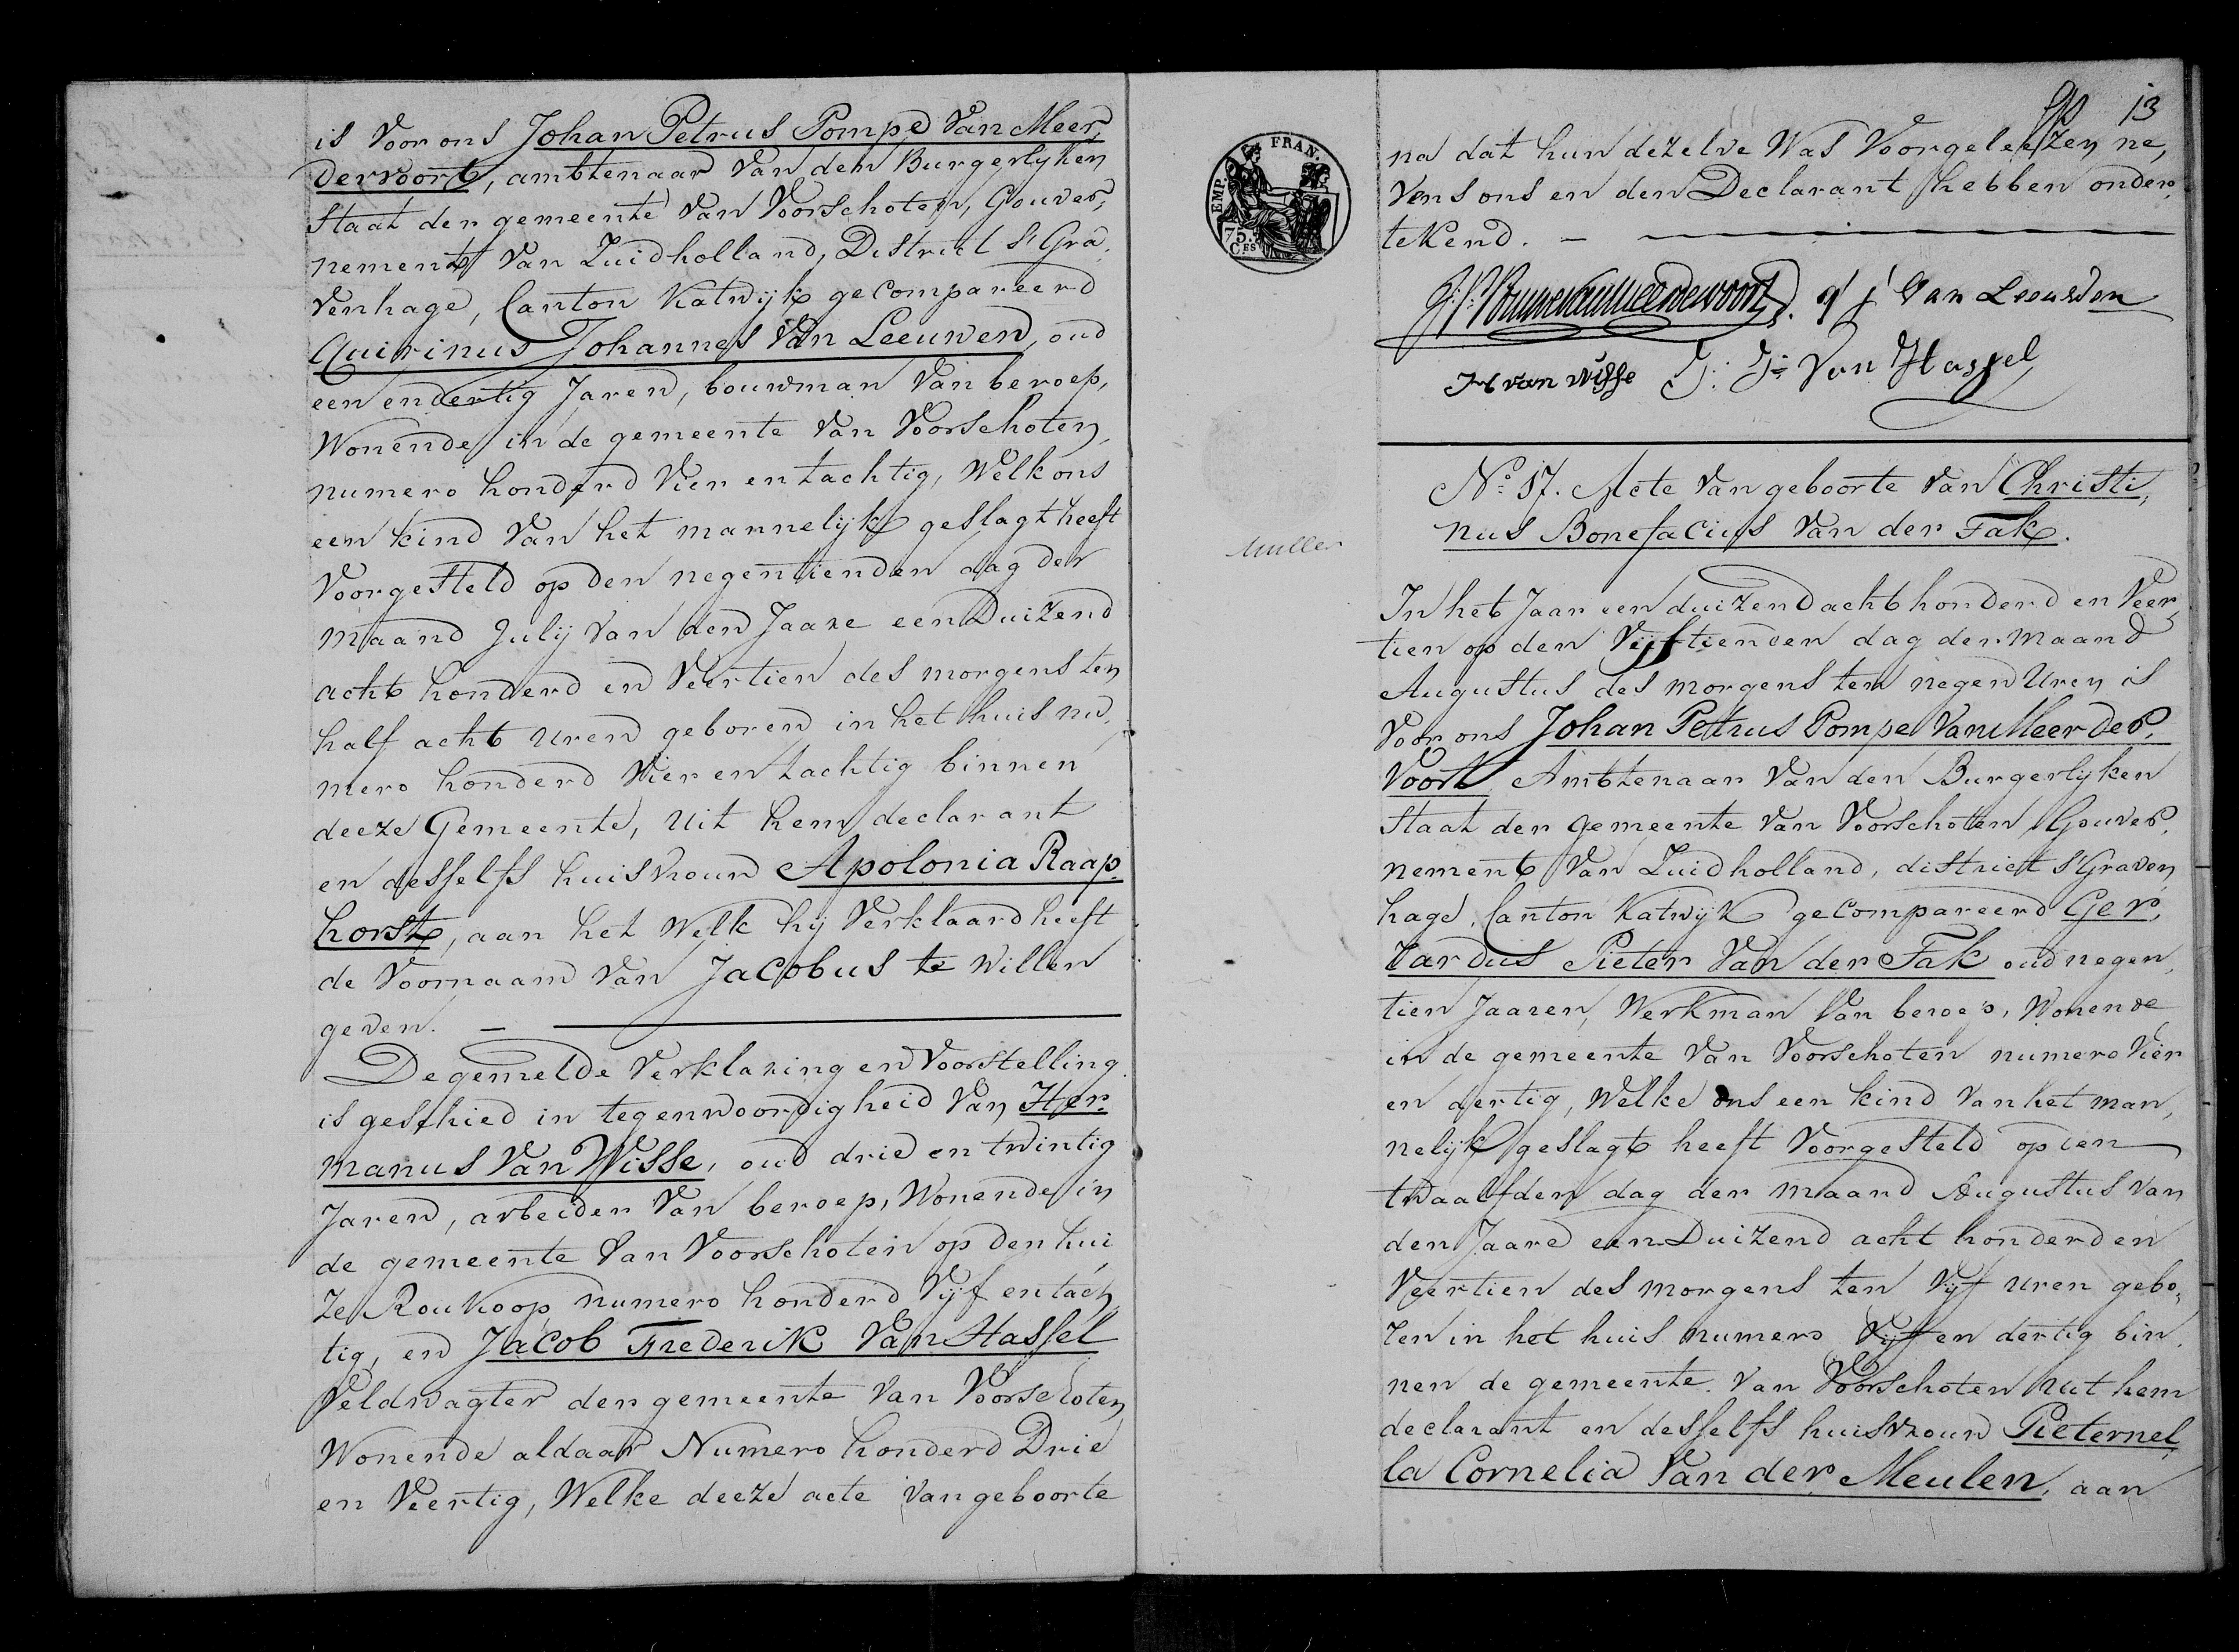 is voor ons Johan Petrus Pompe van Meer,
dervoort, ambtenaar van den Burgerlyken
staat der gemeente van Voorschoten, Gouver,
nement van Zuidholland, District s'Gra,
venhage, Canton Katwijk gecompareerd
Quirinus Johannes van Leeuwen, oud
een en dertig Jaren, bouwman van beroep,
wonende in de gemeente van Voorschoten,
numero honderd vier en tachtig, welk ons
een kind van het mannelijk geslagt heeft
voorgesteld op den negentienden dag der
maand Julij van den Jaare een Duizend
acht honderd en veertien des morgens ten
half acht uren geboren in het huis nu,
mero honderd vier en tachtig binnen
deeze Gemeente, uit hem declarant
en desselfs huisvrouw Apolonia Raap,
horst, aan het welk hy verklaard heeft
de voornaam van Jacobus te willen
geven. —
De gemelde verklaring en voorstelling
is geschied in tegenwoordigheid van Her,
manus van Wisse, oud drie en twintig
Jaren, arbeider van beroep, wonende in
de gemeente van Voorschoten op den hui
ze Roukoop numero honderd vyf en tach,
tig, en Jacob Frederik van Hassel
veldwagter der gemeente van Voorschoten
wonende aldaar Numero honderd Drie
en veertig, welke deeze acte van geboorte
13
EMP. FRAN.
75.
CES
na dat hun dezelve was voorgeleezen ne,
vens ons en den Declarant hebben onder,
tekend. —
q j van Leeuwen
H van Wisse J: F: van Hassel
No. 17. Acte van geboorte van Christi,
nus Bonefacius van der Fak.
Muller
In het Jaar een duizend acht honderd en veer,
tien op den vijftienden dag der maand
Augustus des morgens ten negen uren is
voor ons Johan Petrus Pompe van Meerder,
voort Ambtenaar van den Burgerlyken
staat der gemeente van Voorschoten, Gouver,
nement van Zuidholland, district s'Graven,
hage, Canton Katwijk gecompareerd Ger,
rardus Pieter van der Fak oud negen,
tien Jaaren, werkman van beroep, wonende
in de gemeente van Voorschoten numero vier
en dertig, welke ons een kind van het man,
nelijk geslagt heeft voorgesteld op den
twaalfden dag der maand Augustus van
den Jaare een Duizend acht honderd en
veertien des morgens ten vyf uren gebo,
ren in het huis numero vyf en dertig bin,
nen de gemeente van Voorschoten uit hem
declarant en desselfs huisvrouw Pieternel,
la Cornelia van der Meulen, aan